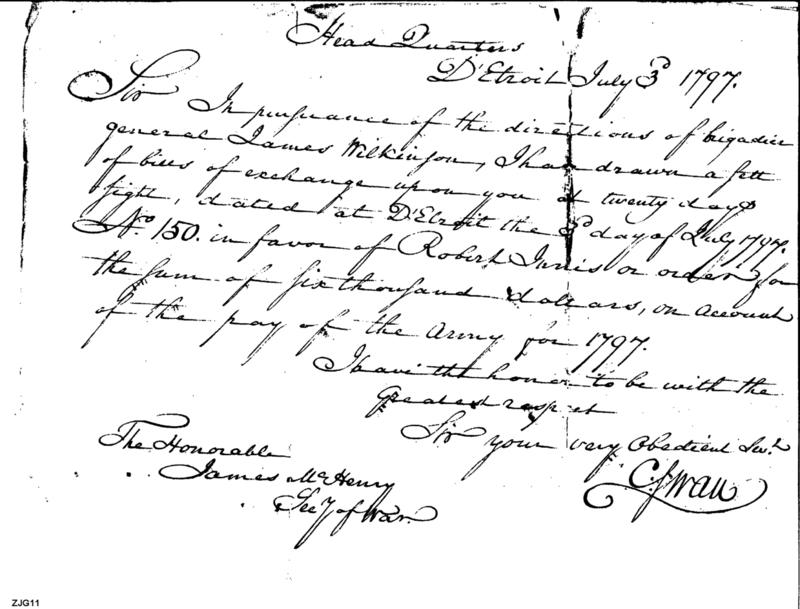 Head Quarters
D'Etroit July 3d 1797.
Sir In pursuance of the directions of brigadier
general James Wilkinson, I have drawn a sett
of bills of exchange upon you at twenty days
sight, dated at D'Etroit the 3d day of July 1797.
No. 150. in favor of Robert Innis or order for
the sum of six thousand dollars, on account
of the pay of the Army for 1797.
I have the honor to be with the
greatest respect
Sir your very Obedient Servt.
The Honorable
C Swan
James McHenry
Secy of War.
ZJG11